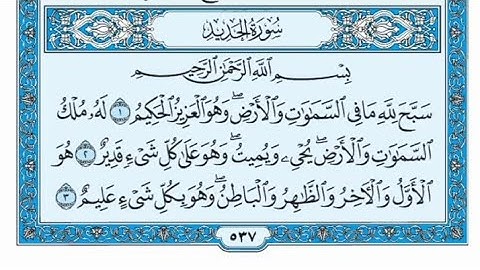 سُورَةُ الحَدِيدِ
بِسْمِ اللَّهِ الرَّحْمَٰنِ الرَّحِيمِ
سَبَّحَ لِلَّهِ مَا فِي السَّمَاوَاتِ وَالْأَرْضِ ۖ وَهُوَ الْعَزِيزُ الْحَكِيمُ ١ لَهُ مُلْكُ
السَّمَاوَاتِ وَالْأَرْضِ ۖ يُحْيِي وَيُمِيتُ ۖ وَهُوَ عَلَىٰ كُلِّ شَيْءٍ قَدِيرٌ ٢ هُوَ
الْأَوَّلُ وَالْآخِرُ وَالظَّاهِرُ وَالْبَاطِنُ ۖ وَهُوَ بِكُلِّ شَيْءٍ عَلِيمٌ ٣
٥٣٧